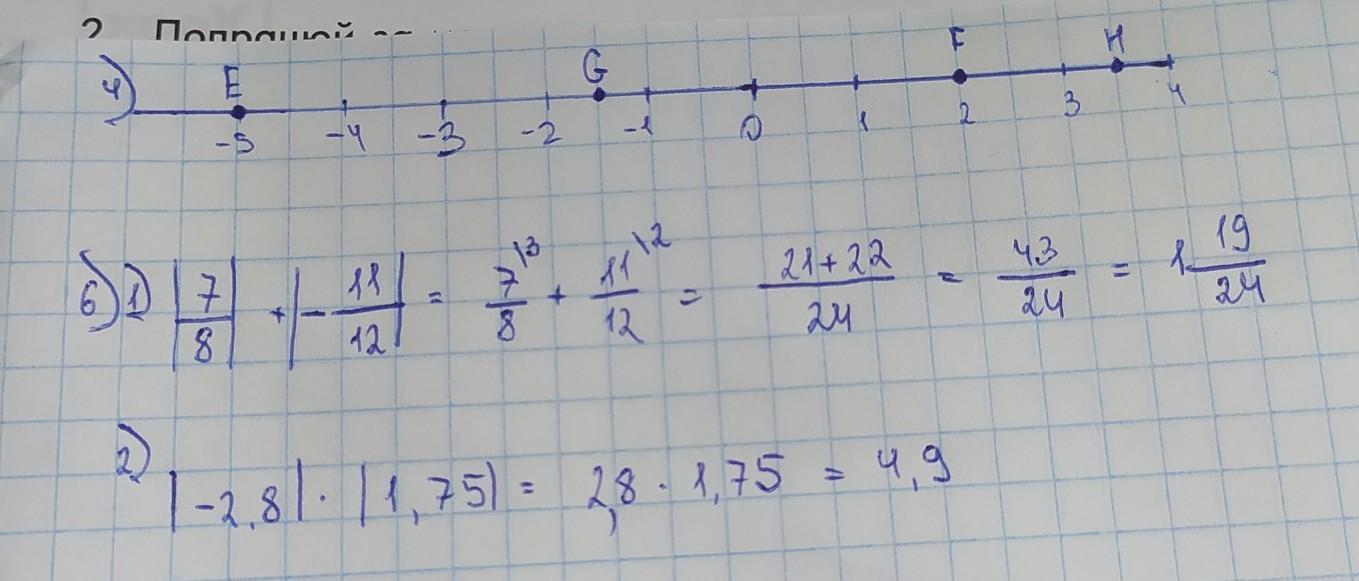 2
4) E G F H
-5 -4 -3 -2 -1 0 1 2 3 4
6) 1) |7/8| + |-11/12| = 7\3/8 + 11\2/12 = 21+22/24 = 43/24 = 1 19/24
2) |-2,8| · |1,75| = 2,8 · 1,75 = 4,9